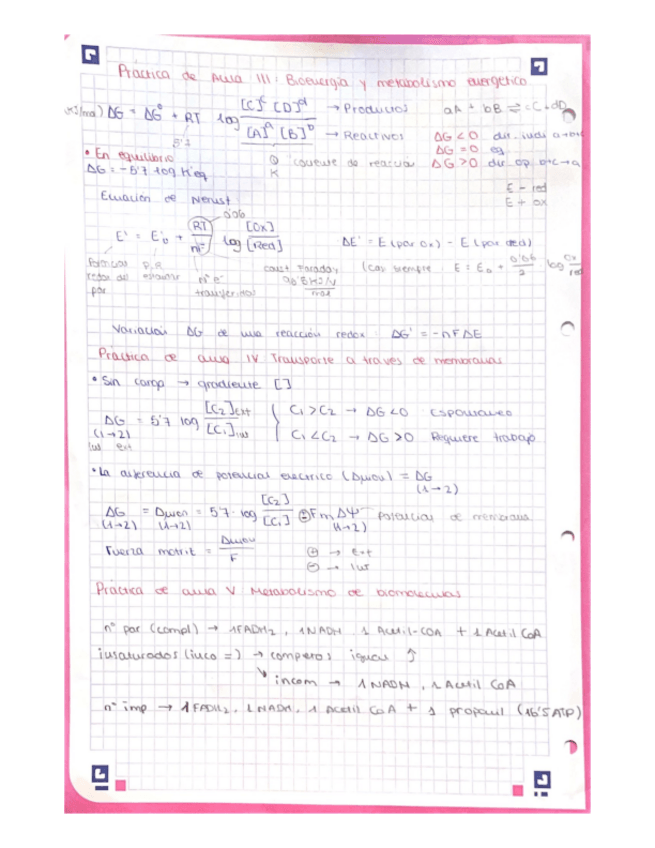 Práctica de Aula III: Bioenergía y metabolismo energético
ΔG = ΔG° + RT log [C]^c [D]^d → Productos aA + bB ⇌ cC + dD
[A]^a [B]^b → Reactivos ΔG < 0 dir. indi a+b→c
5'7 ΔG = 0 eq
• En equilibrio Q cociente de reacción ΔG > 0 dir op
ΔG = -5'7 log K'eq K
Ecuación de Nerust E - red
E + ox
0'06
E' = E'o + RT/nF log [Ox]/[Red] ΔE' = E (par ox) - E (par red)
Potencial P.R. nº e- const Faraday (casi siempre E = Eo + 0'06/2 · log ox/red
redox del estandar transferidos
par
Variación ΔG de una reacción redox ΔG' = -nFΔE
Práctica de aula IV Transporte a traves de membranas
• Sin carga → gradiente [ ]
ΔG = 5'7 log [C2]ext/[C1]int { C1 > C2 → ΔG < 0 Espontaneo
(1→2) C1 < C2 → ΔG > 0 Requiere trabajo
int ext
• La diferencia de potencial electrico (Δμion) = ΔG
(1→2)
ΔG = Δμion = 5'7 · log [C2]/[C1] ± F m ΔΨ potencial de membrana
(1→2) (1→2) (1→2)
Fuerza motriz = Δμion/F ⊕ → Ext
⊖ → Int
Práctica de aula V Metabolismo de biomoleculas
nº par (compl) → 1FADH2, 1NADH 1 Acetil-COA + 1 Acetil CoA
insaturados (inco =) → completos igual ↑
↘ incom → 1 NADH, 1 Acetil CoA
nº imp → 1 FADH2, 1 NADH, 1 Acetil CoA + 1 propanil (16'5 ATP)